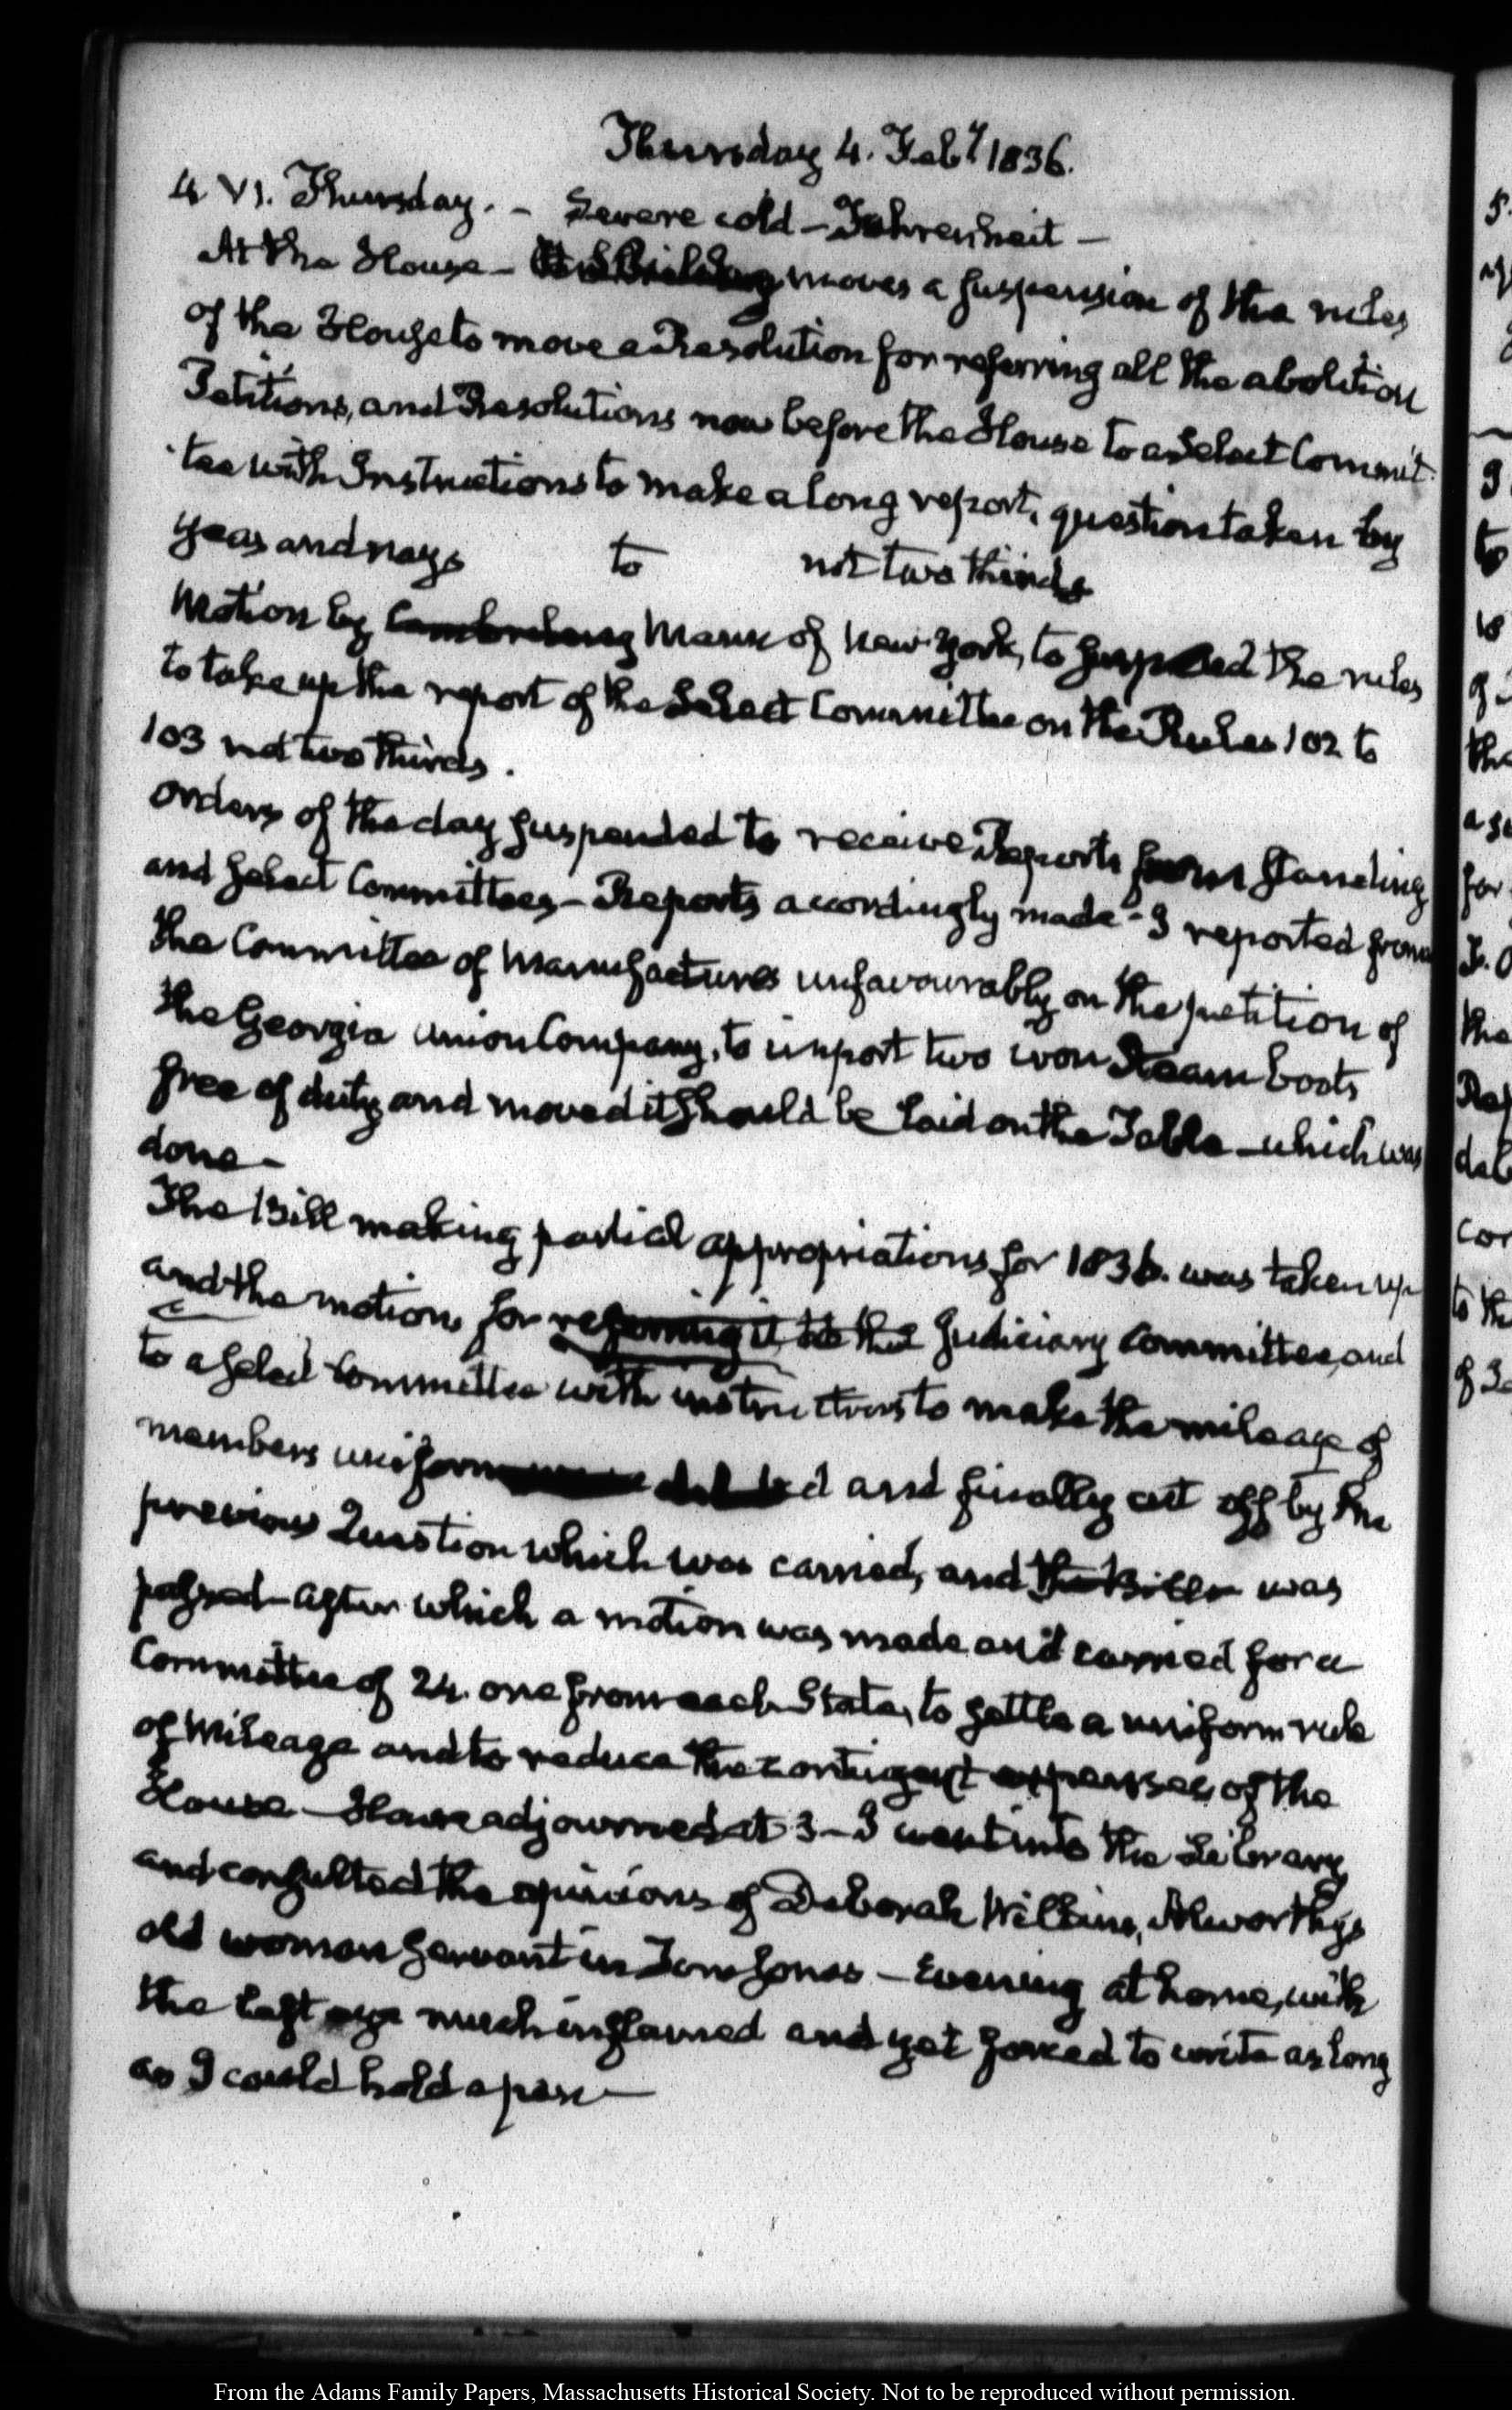 Thursday 4. Feby 1836.
4. VI. Thursday. - Severe cold - Fahrenheit -
At the House - moves a suspension of the rules
of the House to move a Resolution for referring all the abolition
Petitions, and Resolutions now before the House to a Select Commit-
tee with Instructions to make a long report, question taken by
yeas and nays to not two thirds
Motion by Cambreleng Mann of New-York, to suspend the rules
to take up the report of the Select Committee on the Rules 102 to
103 not two thirds.
Orders of the day suspended to receive Reports from standing
and Select Committees - Reports accordingly made - I reported from
the Committee of Manufactures unfavourably on the petition of
the Georgia Union Company, to import two iron Steam boats
free of duty and moved it should be laid on the Table - which was
done -
The Bill making partial appropriations for 1836. was taken up
and the motions for referring it to the Judiciary Committee, and
to a select Committee with instructions to make the mileage of
members uniform and finally cut off by the
previous Question which was carried, and the Bill was
passed - after which a motion was made and carried for a
Committee of 24. one from each State, to settle a uniform rule
of Mileage and to reduce the contingent expenses of the
House - House adjourned at 3 - I went into the Library
and consulted the opinions of Deborah Wilkins, Alworthy's
old woman servant in Tom Jones - Evening at home, with
the left eye much inflamed and yet forced to write as long
as I could hold a pen -
From the Adams Family Papers, Massachusetts Historical Society. Not to be reproduced without permission.